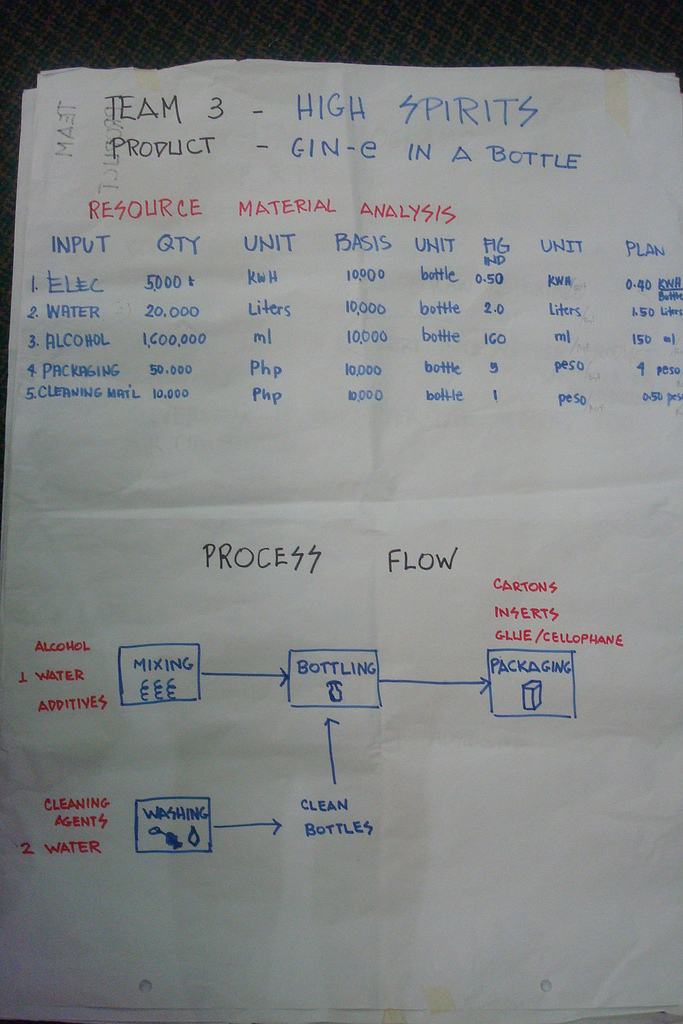 TEAM 3 - HIGH SPIRITS
PRODUCT - GIN-e IN A BOTTLE
RESOURCE MATERIAL ANALYSIS
INPUT QTY UNIT BASIS UNIT FIG IND UNIT PLAN
1. ELEC 5,000 KWH 10,000 bottle 0.50 KWH 0.40 KWH/Bottle
2. WATER 20.000 Liters 10,000 bottle 2.0 Liters 1.50 Liters
3. ALCOHOL 1,600,000 ml 10,000 bottle 160 ml 150 ml
4. PACKAGING 50.000 Php 10,000 bottle 5 peso 4 peso
5. CLEANING MAT'L 10.000 Php 10,000 bottle 1 peso 0.50 peso
PROCESS FLOW
CARTONS
INSERTS
GLUE/CELLOPHANE
ALCOHOL
1 WATER
ADDITIVES
MIXING
BOTTLING
PACKAGING
CLEANING
AGENTS
2 WATER
WASHING
CLEAN
BOTTLES